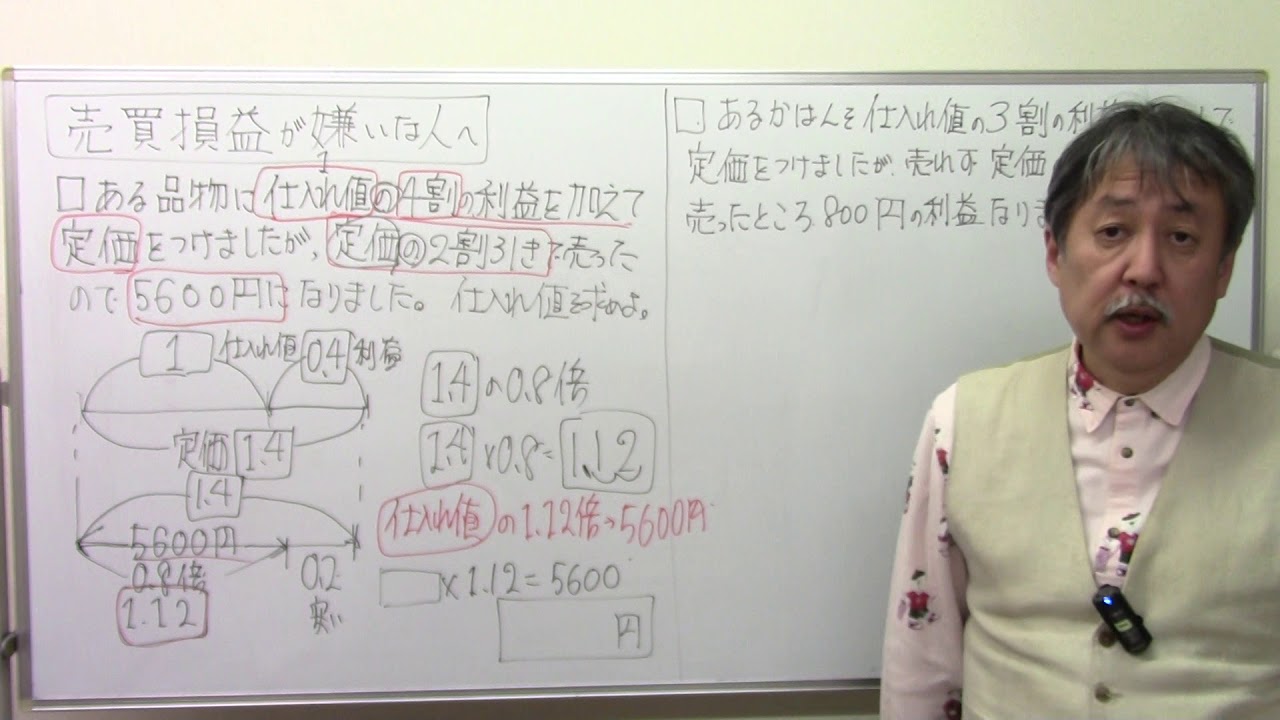 売買損益が嫌いな人へ
1
□ ある品物に仕入れ値の4割の利益を加えて
定価をつけましたが、定価の2割引きで売った
ので5600円になりました。 仕入れ値を求めよ。
1 仕入れ値 0.4 利益
定価 1.4
1.4
5600円
0.8倍 0.2
1.12
1.4の0.8倍
1.4×0.8=1.12
仕入れ値の1.12倍→5600円
□×1.12=5600
円
□ あるかばんを仕入れ値の3割の利益
定価をつけましたが、売れず定価
売ったところ800円の利益なりま